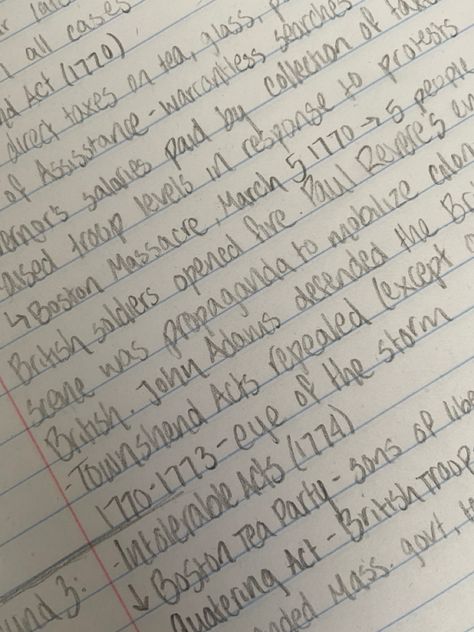 all cases
Act (1770)
direct taxes on tea, glass,
of Assisstance - warrantless searches
salaries paid by collection of
troop levels in response to protests
↳ Boston Massacre, March 5 1770 → 5 people
British soldiers opened fire. Paul Revere's
scene was propaganda to mobalize
British. John Adams defended the
- Townshend Acts repealed (except
1770-1773 - eye of the storm
- Intolerable Acts (1774)
↓ Boston Tea Party - sons of
Quatering Act - British Troop
3:
Mass. govt,